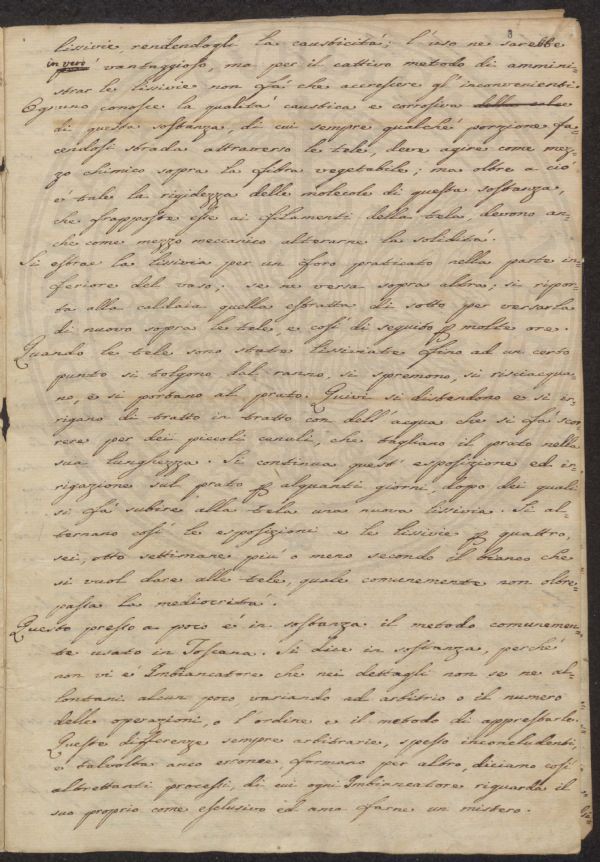 8
lissivie rendendogli la causticità; l'uso ne sarebbe
in vero vantaggioso, ma per il cattivo metodo di ammini=
strar le lissivie non fà che accrescere gl'inconvenienti.
Ognuno conosce la qualità caustica e corrosiva della calce
di questa sostanza, di cui sempre qualche porzione fa=
cendosi strada attraverso le tele, deve agire come mez=
zo chimico sopra la fibra vegetabile; ma oltre a ciò
è tale la rigidezza delle molecole di questa sostanza,
che frapposte esse ai filamenti della tela, devono an=
che come mezzo meccanico alterarne la solidità.
Si estrae la lissivia per un foro praticato nella parte in=
feriore del vaso; se ne versa sopra altra; si ripor=
ta alla caldaia quella estratta di sotto per versarla
di nuovo sopra le tele, e così di seguito p molte ore.
Quando le tele sono state lissiviate fino ad un certo
punto si tolgono dal ranno, si spremono, si risciacqua=
no, e si portano al prato. Quivi si distendono e si ir=
rigano di tratto in tratto con dell'acqua che si fà scor=
rere per dei piccoli canali, che tagliano il prato nella
sua lunghezza. Si continua quest'esposizione ed ir=
rigazione sul prato p alquanti giorni, dopo dei quali
si fà subire alla tela una nuova lissivia. Si al=
ternano così le esposizioni e le lissivie p quattro,
sei, otto settimane più o meno secondo il bianco che
si vuol dare alle tele, quale comunemente non oltre=
passa la mediocrità.
Questo presso a poco è in sostanza il metodo comunemen=
te usato in Toscana. Si dice in sostanza, perchè
non vi è Imbiancatore che nei dettagli non se ne al=
lontani alcun poco variando ad arbitrio o il numero
delle operazioni, o l'ordine e il metodo di apprestarle.
Queste differenze sempre arbitrarie, spesso inconcludenti,
e talvolta anco erronee formano per altro, diciamo così
altrettanti processi, di cui ogni Imbiancatore riguarda il
suo proprio come esclusivo ed ama farne un mistero.